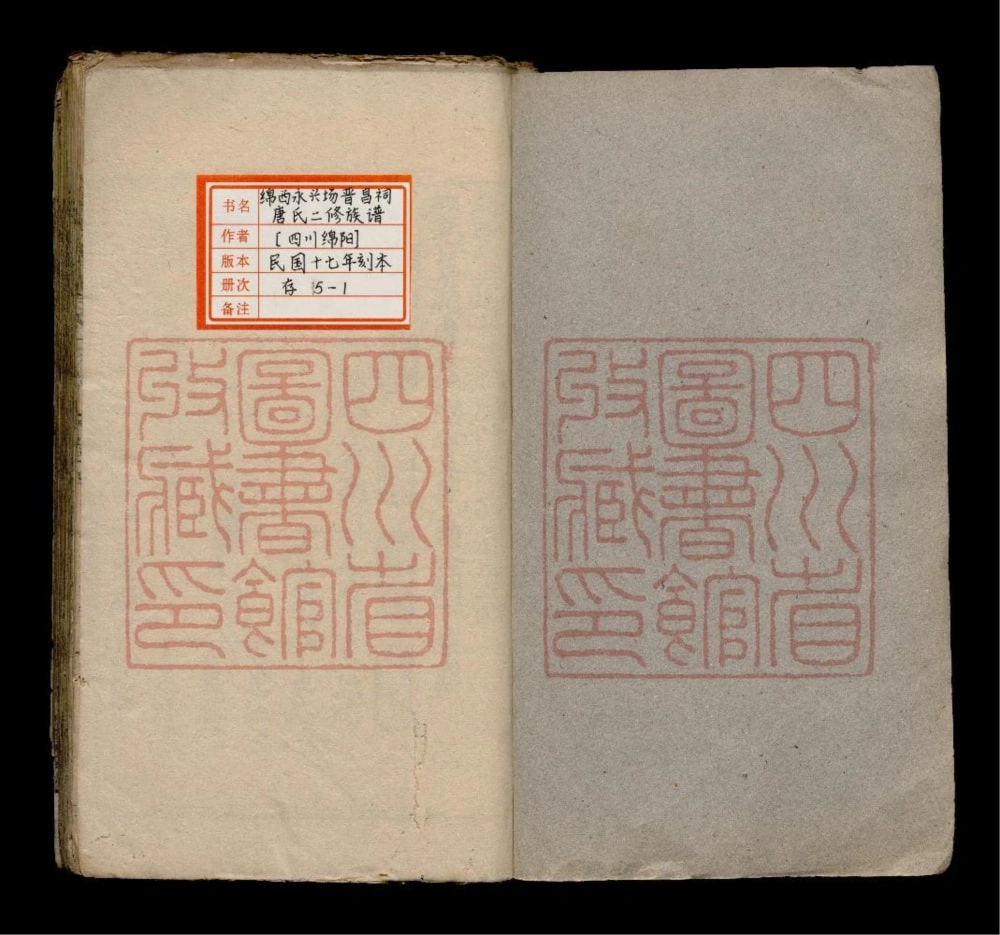 书名 绵西永兴场晋昌祠
唐氏二修族谱
作者 [四川绵阳]
版本 民国十七年刻本
册次 存 5-1
备注
四川省
圖書館
收藏印
四川省
圖書館
收藏印